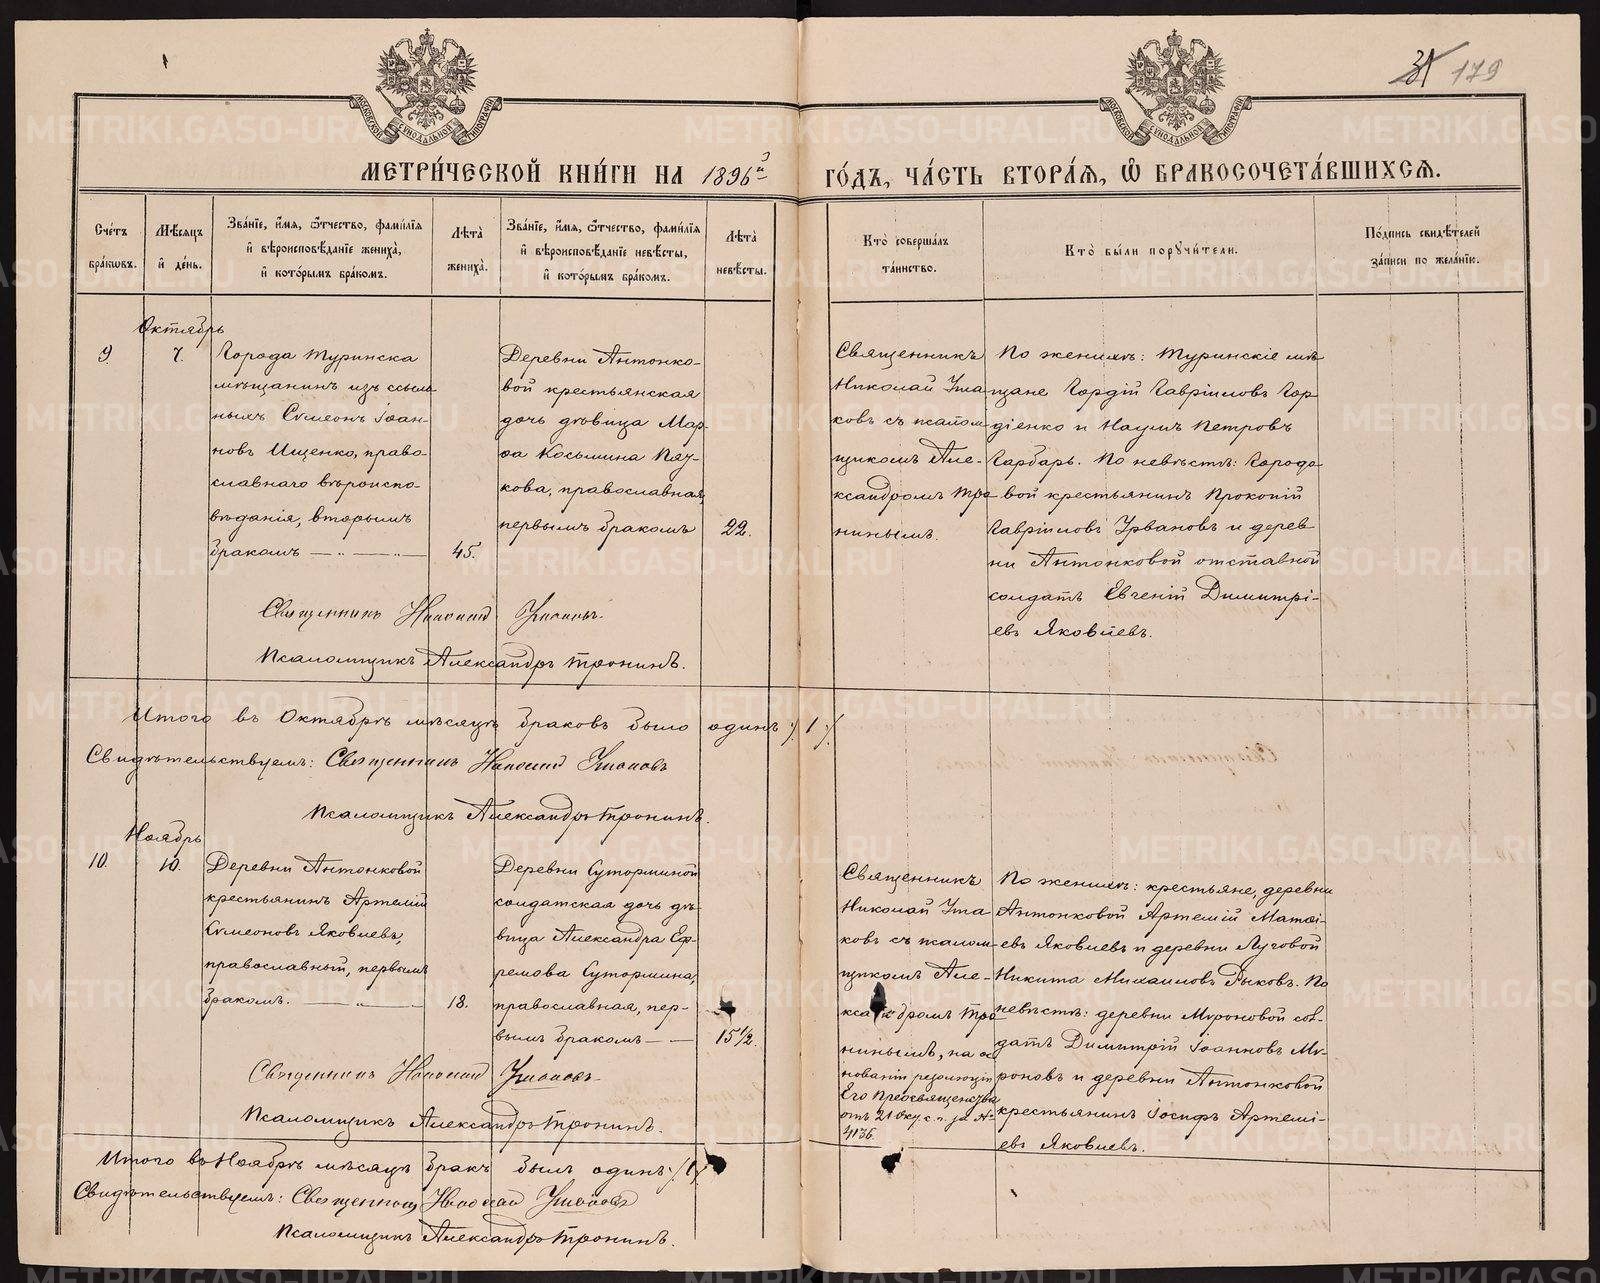 31 179
МОСКОВСКОЙ СѴНОДАЛЬНОЙ ТИПОГРАФІИ
МОСКОВСКОЙ СѴНОДАЛЬНОЙ ТИПОГРАФІИ
МЕТРИ́ЧЕСКОЙ КНИ́ГИ НА 1896й
ГО́ДЪ, ЧА́СТЬ ВТОРА́Я, Ѡ҆ БРАКОСОЧЕТА́ВШИХСЯ.
Сче́тъ
бра́ковъ.
Мѣ́сяцъ
и҆ де́нь.
Зва́нїе, и҆́мя, ѻ҆́тчество, фами́лїя
и҆ вѣроисповѣ́данїе жениха̀,
и҆ кото́рымъ бра́комъ.
Лѣ́та̀
жениха̀.
Зва́нїе, и҆́мя, ѻ҆́тчество, фами́лїя
и҆ вѣроисповѣ́данїе невѣ́сты,
и҆ кото́рымъ бра́комъ.
Лѣ́та̀
невѣ́сты.
Кто̀ соверша́лъ
та́инство.
Кто̀ бы́ли поручи́тели.
По́дпись свидѣ́телей
за́писи по жела́нїю.
Октябрь
9. 7.
Города Туринска
мѣщанинъ изъ ссыль
ныхъ Сѵмеонъ Іоан-
новъ Ищенко, право-
славнаго вѣроиспо-
вѣданія, вторымъ
бракомъ — „ — „ —
45.
Деревни Антонко-
вой крестьянская
дочь дѣвица Мар-
ѳа Косьмина Пау-
кова, православная,
первымъ бракомъ
22.
Священникъ
Николай Уша
ковъ съ псалом-
щикомъ Але-
ксандромъ Тро
нинымъ.
По женихѣ: Туринскіе мѣ
щане Гордій Гавріиловъ Гор
діенко и Наумъ Петровъ
Гарбарь. По невѣстѣ: Городо
вой крестьянинъ Прокопій
Гавріиловъ Урвановъ и дерев
ни Антонковой отставной
солдатъ Евгеній Димитрі-
евъ Яковлевъ.
Священникъ Николай Ушаковъ.
Псаломщикъ Александръ Тронинъ.
Итого въ Октябрѣ мѣсяцѣ браковъ было одинъ /. 1 /.
Свидѣтельствуемъ: Священникъ Николай Ушаковъ
Псаломщикъ Александръ Тронинъ.
Ноябрь
10. 10.
Деревни Антонковой
крестьянинъ Артемій
Сѵмеоновъ Яковлевъ,
православный, первымъ
бракомъ. — „ —
18.
Деревни Суторминой
солдатская дочь дѣ-
вица Александра Еф-
ремова Сутормина,
православная, пер-
вымъ бракомъ — —
15 1/2.
Священникъ
Николай Уша
ковъ съ псалом-
щикомъ Але-
ксандромъ Тро
нинымъ, на ос
нованіи резолюціи
Его Преосвященства
отъ 21 Окт. с. г. за №
4136.
По женихѣ: крестьяне, деревни
Антонковой Артемій Матѳі-
евъ Яковлевъ и деревни Луговой
Никита Михаиловъ Рыковъ. По
невѣстѣ: деревни Мироновой сол-
датъ Димитрій Іоанновъ Ми-
роновъ и деревни Антонковой
крестьянинъ Іосифъ Артемі-
евъ Яковлевъ.
Священникъ Николай Ушаковъ.
Псаломщикъ Александръ Тронинъ.
Итого въ Ноябрѣ мѣсяцѣ бракъ былъ одинъ /. 1 /.
Свидѣтельствуемъ: Священникъ Николай Ушаковъ
Псаломщикъ Александръ Тронинъ.
METRIKI.GASO-URAL.RU